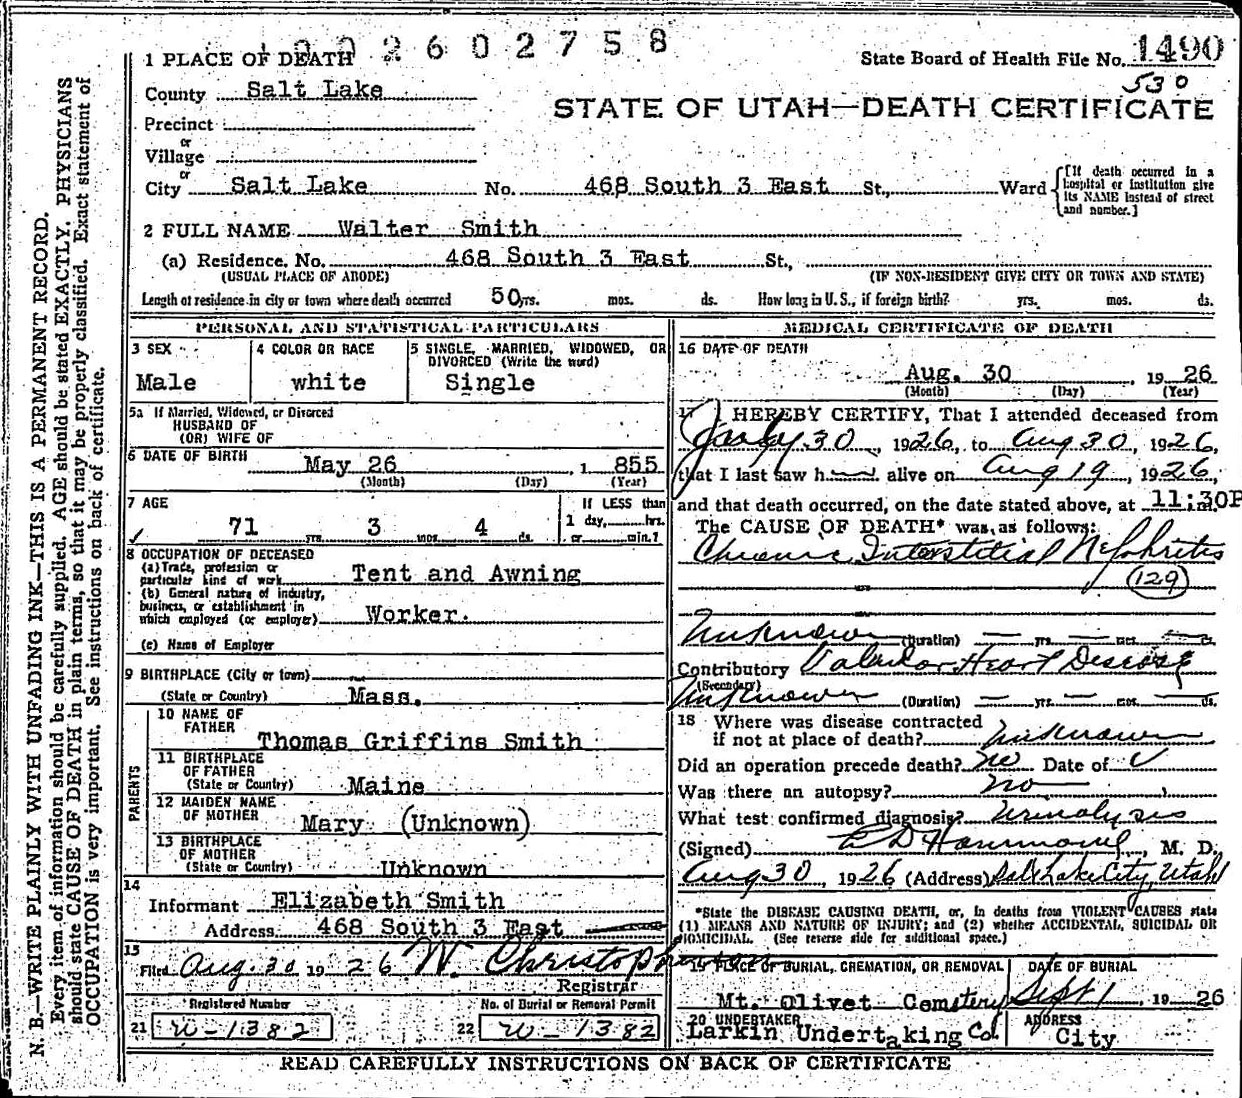 1 9 0 2 6 0 2 7 5 8
State Board of Health File No. 1490
530
STATE OF UTAH—DEATH CERTIFICATE
1 PLACE OF DEATH
County Salt Lake
Precinct
or
Village
or
City Salt Lake No. 468 South 3 East St., Ward
[If death occurred in a hospital or institution give its NAME instead of street and number.]
2 FULL NAME Walter Smith
(a) Residence, No. 468 South 3 East St.,
(USUAL PLACE OF ABODE) (IF NON-RESIDENT GIVE CITY OR TOWN AND STATE)
Length of residence in city or town where death occurred 50 yrs. mos. ds. How long in U. S., if foreign birth? yrs. mos. ds.
PERSONAL AND STATISTICAL PARTICULARS
3 SEX
Male
4 COLOR OR RACE
white
5 SINGLE, MARRIED, WIDOWED, OR
DIVORCED (Write the word)
Single
5a If Married, Widowed, or Divorced
HUSBAND OF
(OR) WIFE OF
6 DATE OF BIRTH May 26 , 1 855
(Month) (Day) (Year)
7 AGE
71 yrs. 3 mos. 4 ds.
If LESS than
1 day, hrs.
or min.?
8 OCCUPATION OF DECEASED
(a) Trade, profession or
particular kind of work Tent and Awning
(b) General nature of industry,
business, or establishment in
which employed (or employer) Worker.
(c) Name of Employer
9 BIRTHPLACE (City or town)
(State or Country) Mass.
PARENTS
10 NAME OF
FATHER
Thomas Griffins Smith
11 BIRTHPLACE
OF FATHER
(State or Country) Maine
12 MAIDEN NAME
OF MOTHER Mary (Unknown)
13 BIRTHPLACE
OF MOTHER
(State or Country) Unknown
14
Informant Elizabeth Smith
Address 468 South 3 East
15
Filed Aug. 30 19 26 W. Christopherson
Registrar
Registered Number No. of Burial or Removal Permit
21 W-1382 22 W-1382
MEDICAL CERTIFICATE OF DEATH
16 DATE OF DEATH
Aug. 30 , 19 26
(Month) (Day) (Year)
17 I HEREBY CERTIFY, That I attended deceased from
July 30, 1926, to Aug 30, 1926,
that I last saw h alive on Aug 19, 1926,
and that death occurred, on the date stated above, at 11:30P m.
The CAUSE OF DEATH* was as follows:
Chronic Interstitial Nephritis
(129)
Unknown (Duration) — yrs. — mos. — ds.
Contributory Valvular Heart Disease
(Secondary)
Unknown (Duration) — yrs. — mos. — ds.
18 Where was disease contracted
if not at place of death? Unknown
Did an operation precede death? no Date of
Was there an autopsy? no
What test confirmed diagnosis? Urinalysis
(Signed) E D Hammond, M. D.
Aug 30, 1926 (Address) Salt Lake City, Utah
*State the DISEASE CAUSING DEATH, or, in deaths from VIOLENT CAUSES state
(1) MEANS AND NATURE OF INJURY; and (2) whether ACCIDENTAL, SUICIDAL OR
HOMICIDAL. (See reverse side for additional space.)
19 PLACE OF BURIAL, CREMATION, OR REMOVAL
Mt. Olivet Cemetery
DATE OF BURIAL
Sept 1, 19 26
20 UNDERTAKER
Larkin Undertaking Co.
ADDRESS
City
READ CAREFULLY INSTRUCTIONS ON BACK OF CERTIFICATE
N. B.—WRITE PLAINLY WITH UNFADING INK—THIS IS A PERMANENT RECORD.
Every item of information should be carefully supplied. AGE should be stated EXACTLY. PHYSICIANS
should state CAUSE OF DEATH in plain terms, so that it may be properly classified. Exact statement of
OCCUPATION is very important. See instructions on back of certificate.